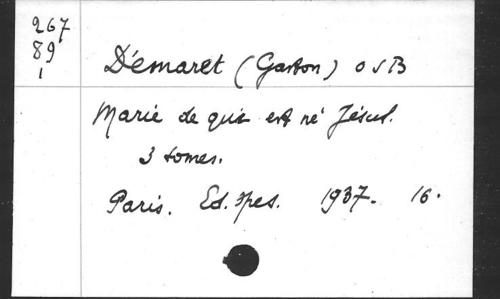 267
89
1
D'émaret (Gaston) OSB
Marie de qui est né Jésus.
3 tomes.
Paris. Ed. Spes. 1937. 16.